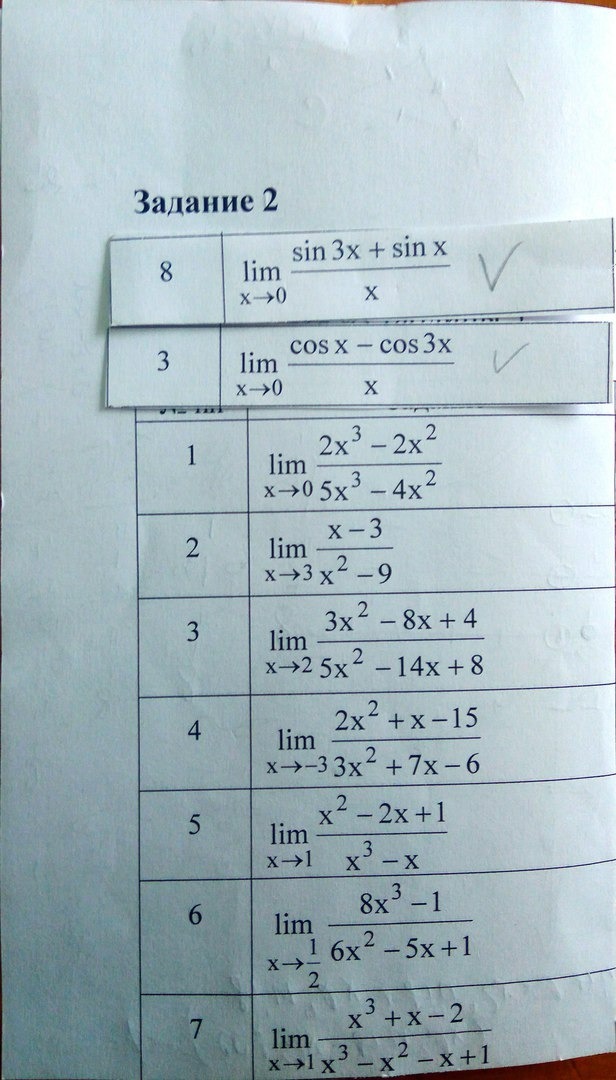 Задание 2
8 lim x→0 (sin 3x + sin x)/x
3 lim x→0 (cos x − cos 3x)/x
1 lim x→0 (2x³ − 2x²)/(5x³ − 4x²)
2 lim x→3 (x − 3)/(x² − 9)
3 lim x→2 (3x² − 8x + 4)/(5x² − 14x + 8)
4 lim x→−3 (2x² + x − 15)/(3x² + 7x − 6)
5 lim x→1 (x² − 2x + 1)/(x³ − x)
6 lim x→1/2 (8x³ − 1)/(6x² − 5x + 1)
7 lim x→1 (x³ + x − 2)/(x³ − x² − x + 1)